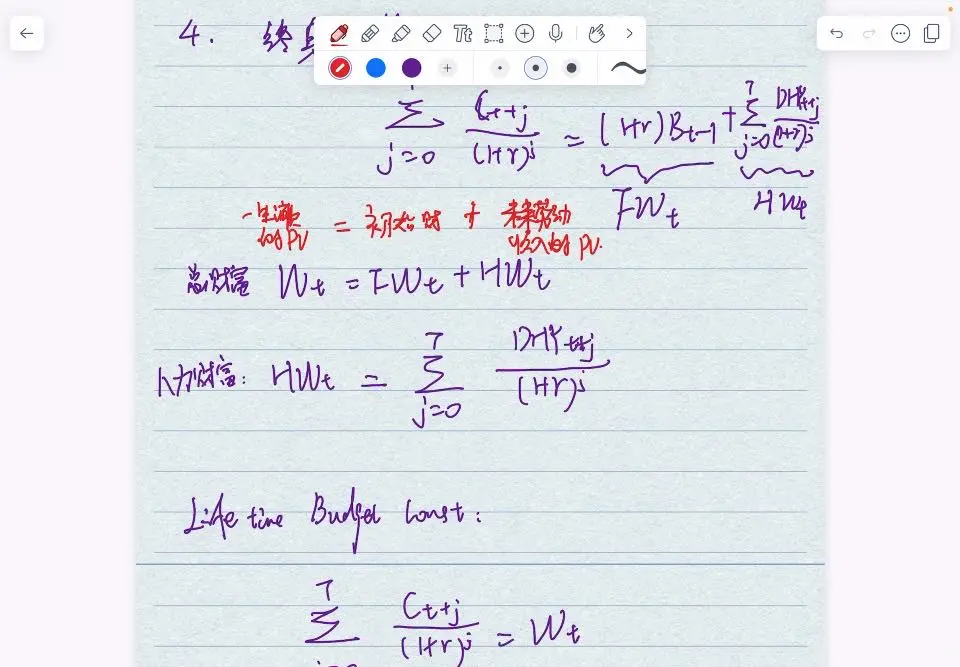 4. 终身
Σ j=0 C_{t+j} / (1+r)^j = (1+r)B_{t-1} + Σ^T j=0 DHY_{t+j} / (1+r)^j
FW_t HW_t
一生消费的PV = 初始财 + 未来劳动收入的PV.
总财富 W_t = FW_t + HW_t
人力财富: HW_t = Σ^T j=0 DHY_{t+j} / (1+r)^j
Life time Budget Const:
Σ^T C_{t+j} / (1+r)^j = W_t